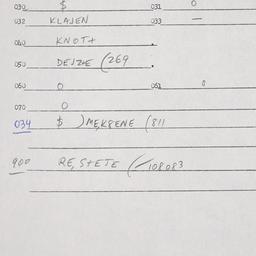 030 $ 031 0
032 KLAJEN 033 —
040 KNOT+
050 DEJZIE (269
060 0 061 0
070 0
034 $ )MEKPENE (811
900 RE, STETE (108083